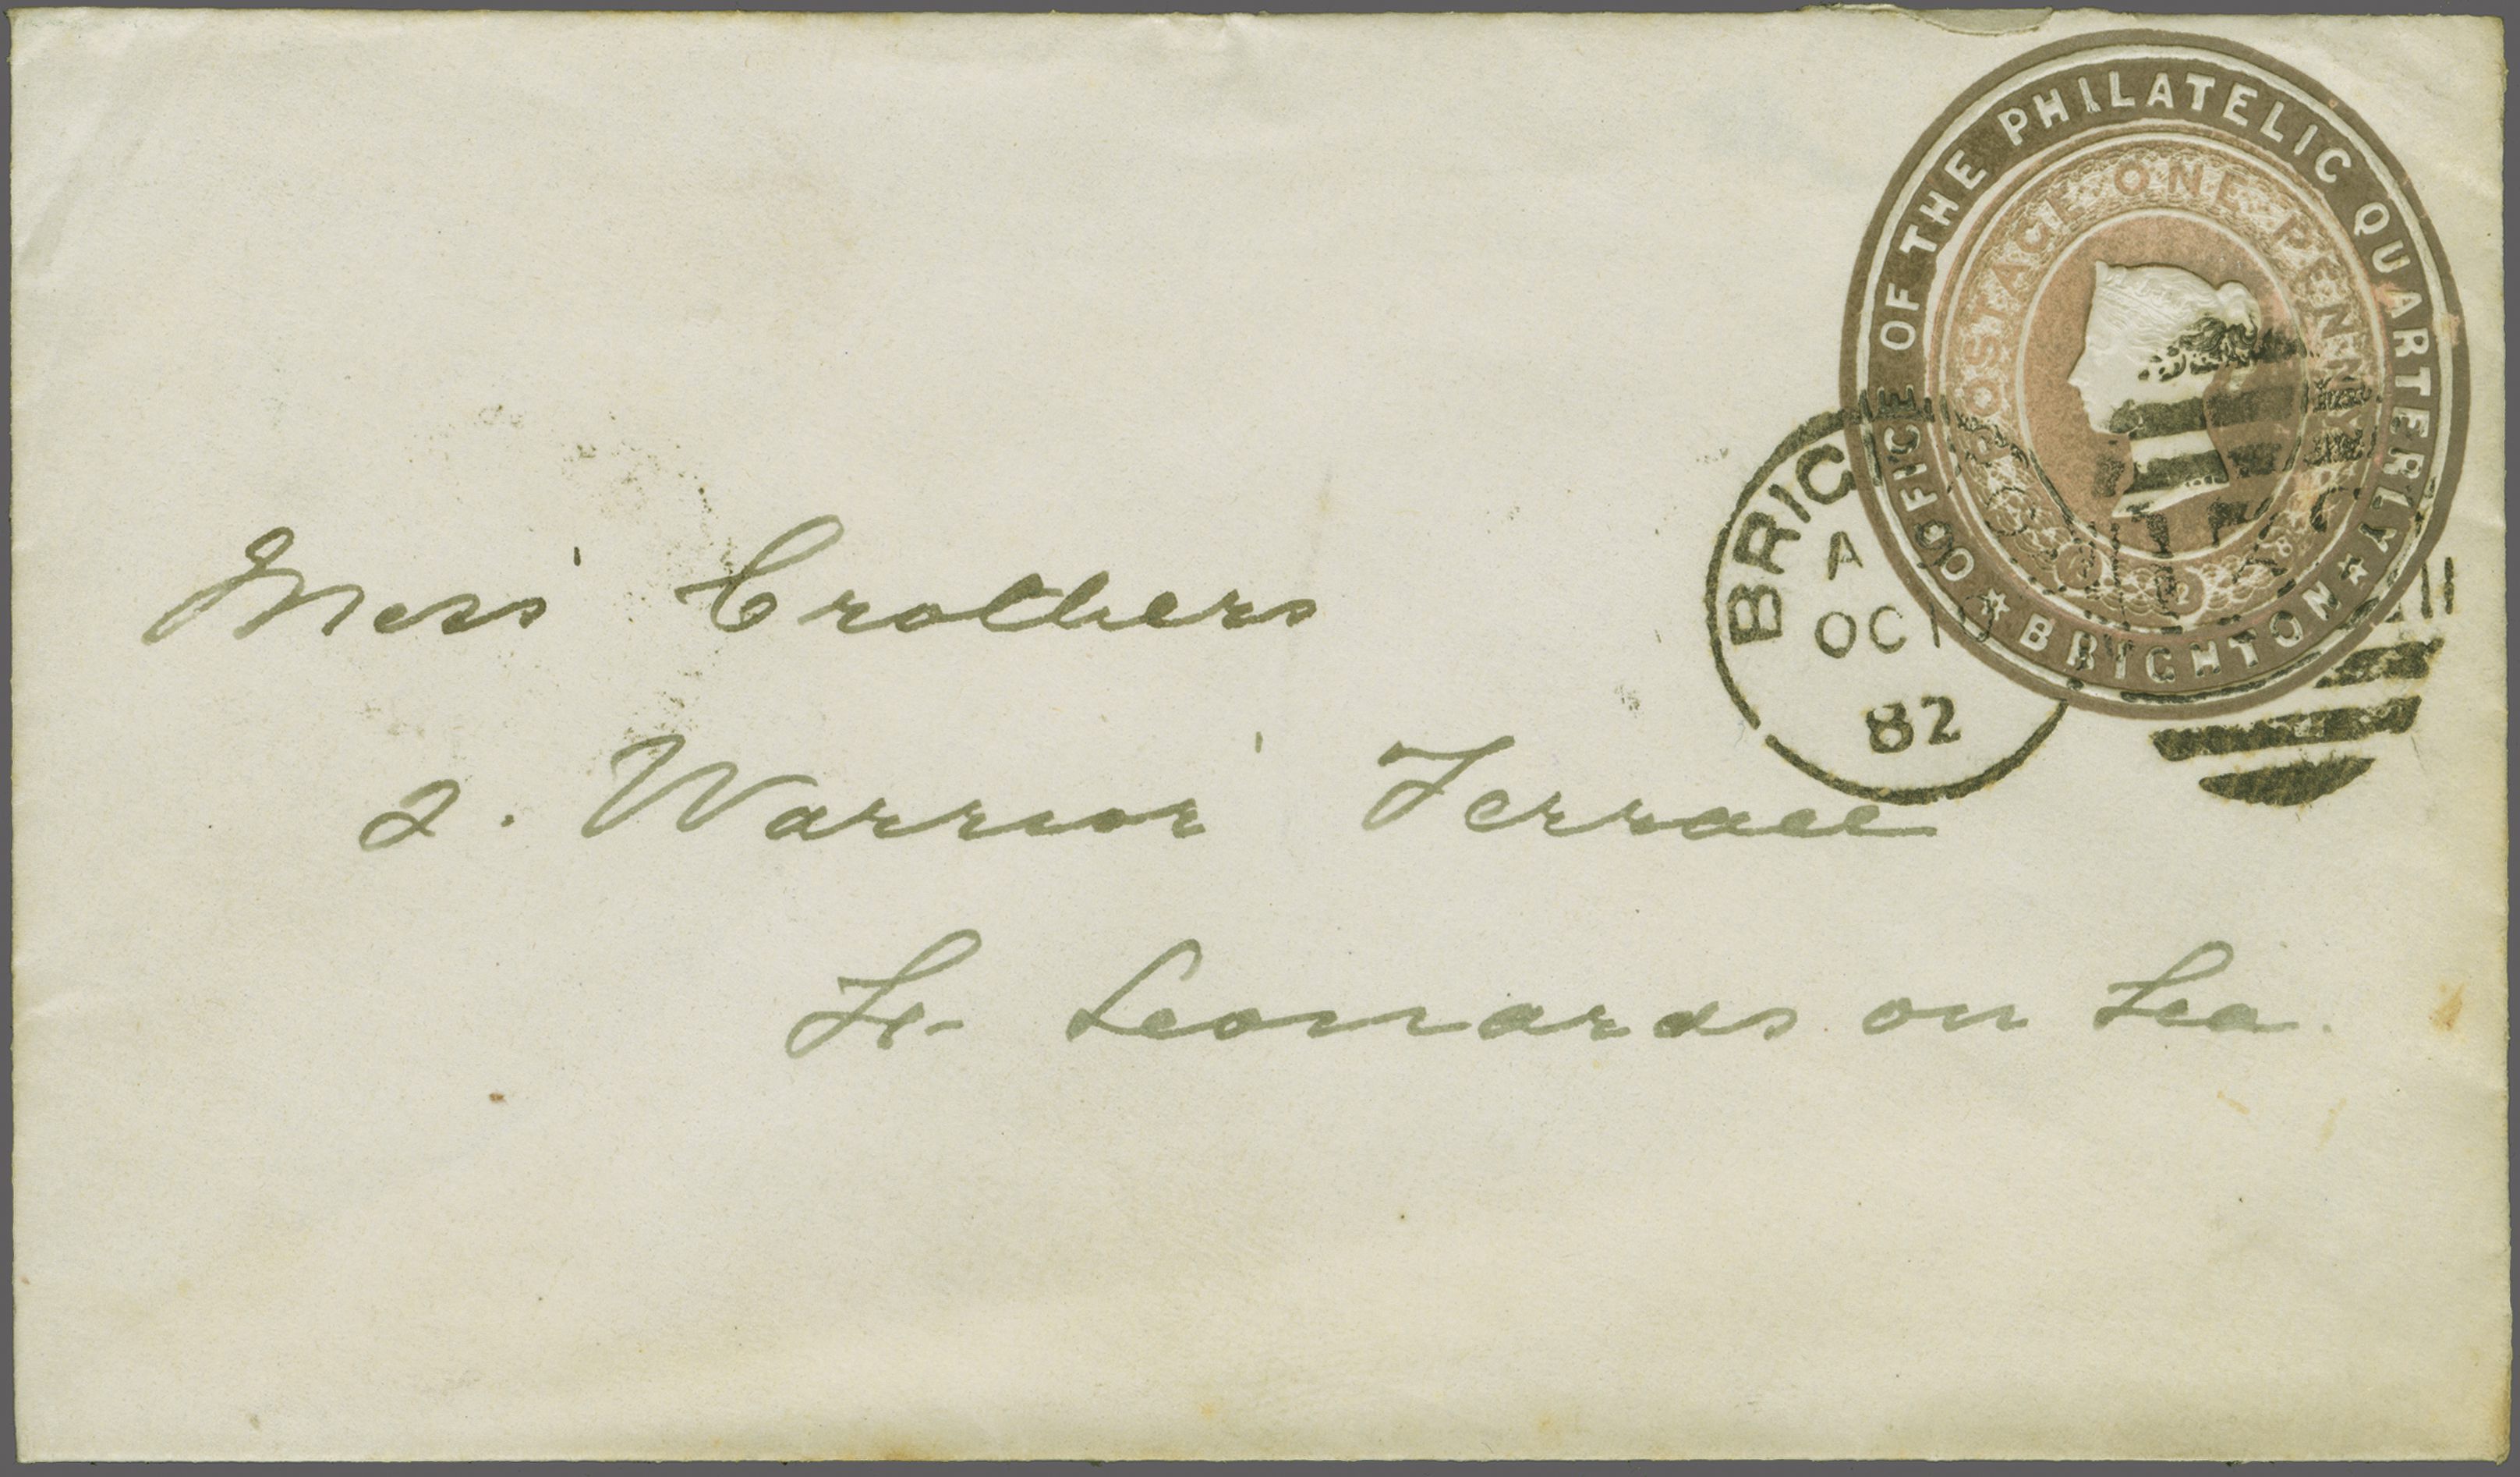 OFFICE OF THE PHILATELIC QUARTERLY
★ BRIGHTON ★
POSTAGE ONE PENNY
BRIG
A
OC
82
Miss Crothers
2. Warrior Terrace
St. Leonards on Sea.